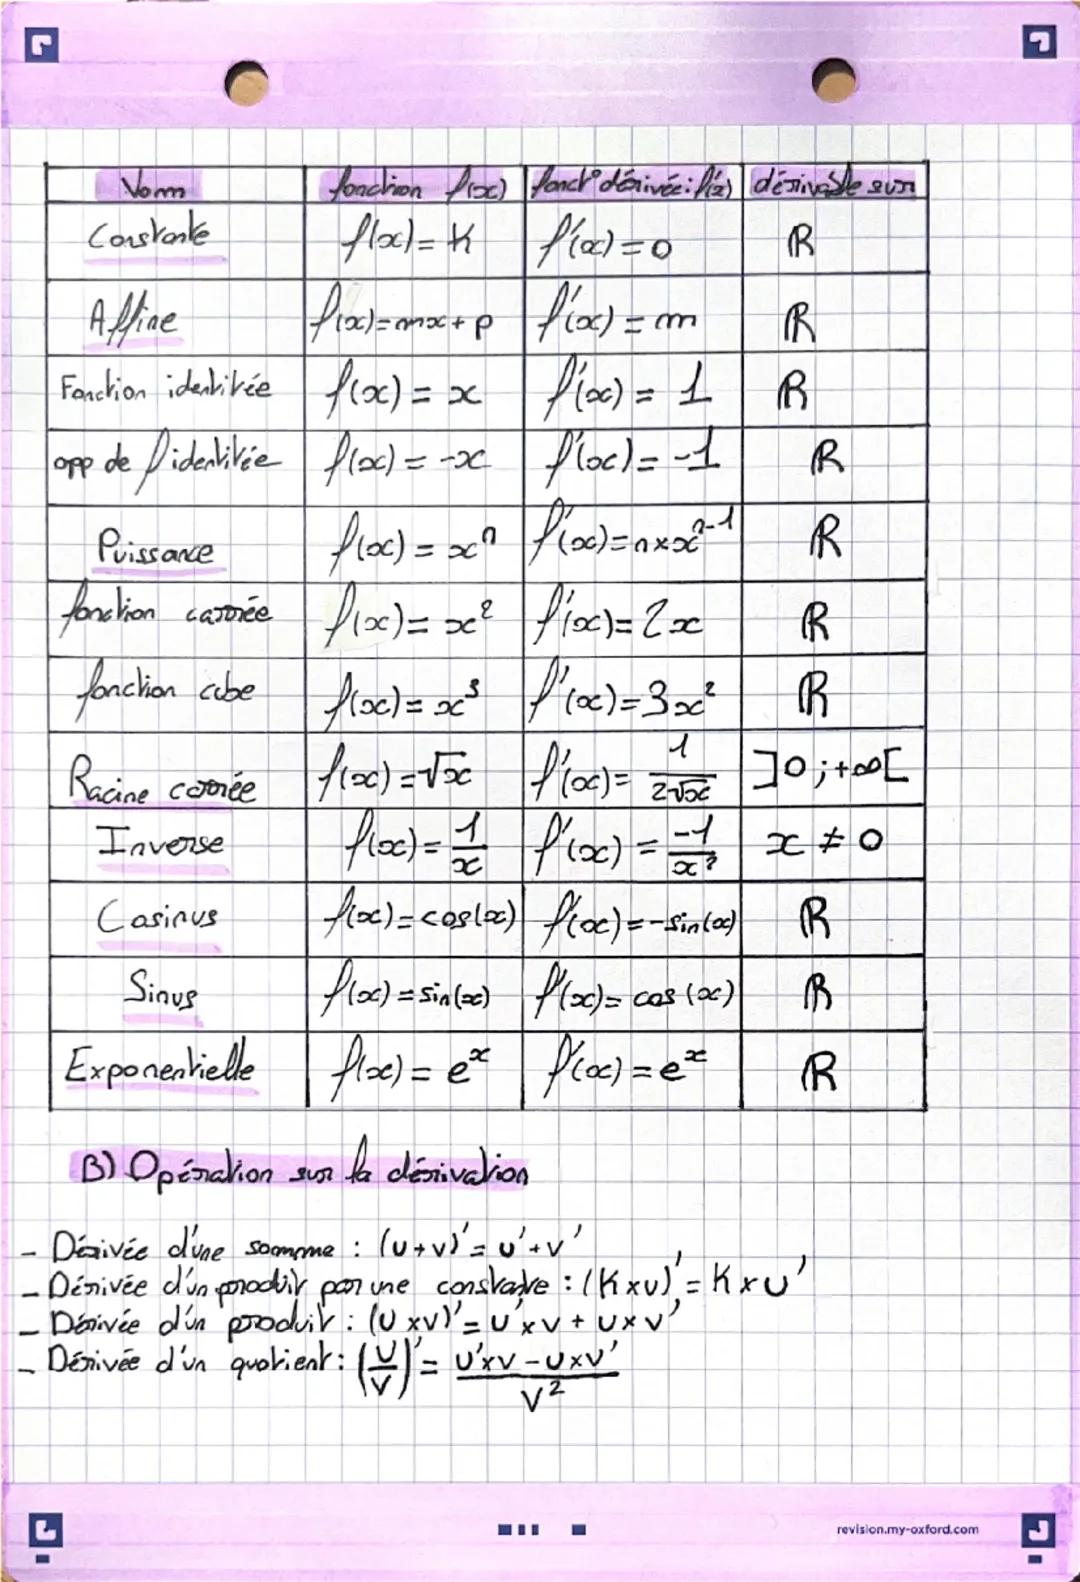 Nom fonction f(x) fonct° dérivée: f'(x) dérivable sur
Constante f(x) = K f'(x) = 0 ℝ
Affine f(x) = mx + p f'(x) = m ℝ
Fonction identitée f(x) = x f'(x) = 1 ℝ
opp de f identitée f(x) = -x f'(x) = -1 ℝ
Puissance f(x) = xⁿ f'(x) = n×xⁿ⁻¹ ℝ
fonction carrée f(x) = x² f'(x) = 2x ℝ
fonction cube f(x) = x³ f'(x) = 3x² ℝ
Racine carrée f(x) = √x f'(x) = 1/(2√x) ]0 ; +∞[
Inverse f(x) = 1/x f'(x) = -1/x² x ≠ 0
Cosinus f(x) = cos(x) f'(x) = -sin(x) ℝ
Sinus f(x) = sin(x) f'(x) = cos(x) ℝ
Exponentielle f(x) = eˣ f'(x) = eˣ ℝ
B) Opération sur la dérivation
- Dérivée d'une somme : (U+V)' = U'+V'
- Dérivée d'un produit par une constante : (K×U)' = K×U'
- Dérivée d'un produit : (U×V)' = U'×V + U×V'
- Dérivée d'un quotient : (U/V)' = (U'×V - U×V')/V²
revision.my-oxford.com